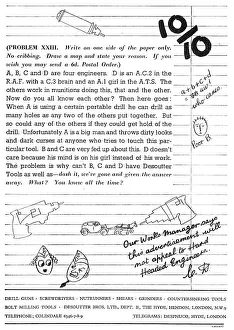 10/10
(PROBLEM XXIII. Write on one side of the paper only.
No cribbing. Draw a map and state your reason. If you
wish you may send a 6d. Postal Order.)
A, B, C and D are four engineers. D is an A.C.2 in the
R.A.F. with a C.3 brain and an A.1 girl in the A.T.S. The
others work in munitions doing this, that and the other.
Now do you all know each other? Then here goes:
When A is using a certain portable drill he can drill as
many holes as any two of the others put together. But
so could any of the others if they could get hold of the
drill. Unfortunately A is a big man and throws dirty looks
and dark curses at anyone who tries to touch this par-
ticular tool. B and C are very fed up about this. D doesn't
care because his mind is on his girl instead of his work.
The problem is why can't B, C and D have Desoutter
Tools as well as—dash it, we're gone and given the answer
away. What? You knew all the time?
a+b+c+d
who cares
Poor B
Our Works Manager says
this advertisement will
not appeal to Hard
Headed Engineers.
DRILL GUNS · SCREWDRIVERS · NUTRUNNERS · SHEARS · GRINDERS · COUNTERSINKING TOOLS
BOLT MILLING TOOLS · DESOUTTER BROS. LTD., DEPT. D, THE HYDE, HENDON, LONDON, N.W.9
TELEPHONE: COLINDALE 6346-7-8-9 TELEGRAMS: DESPNUCO, HYDE, LONDON